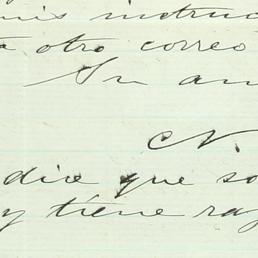 mis instruc
a otro correo
Su am
N.
dice que so
y tiene raz